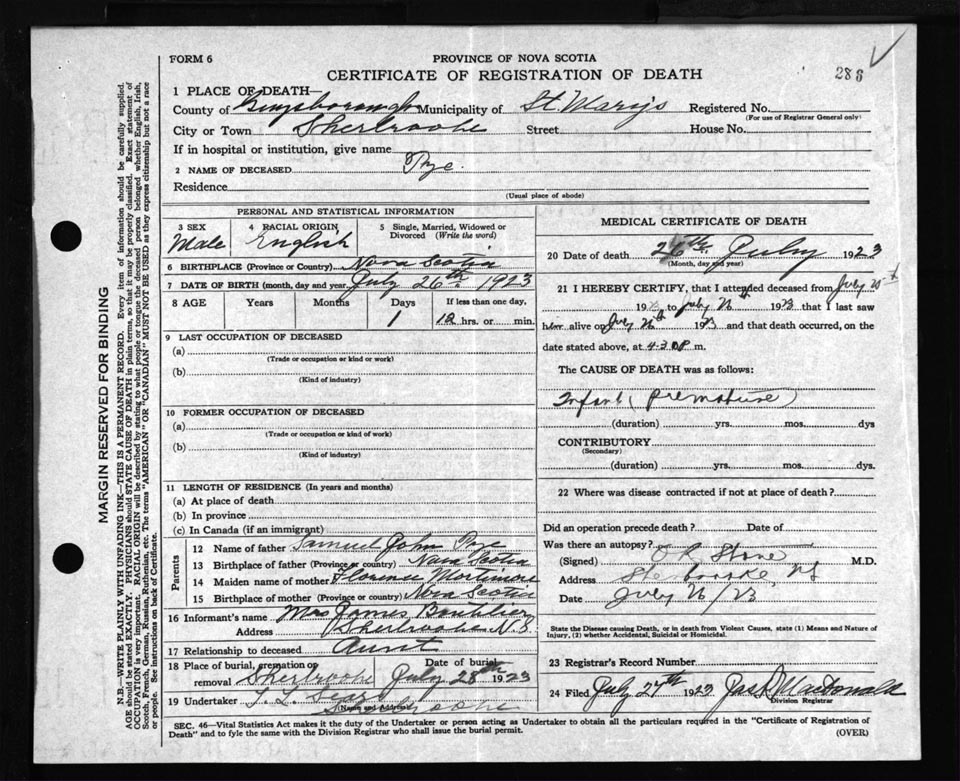 FORM 6
PROVINCE OF NOVA SCOTIA
CERTIFICATE OF REGISTRATION OF DEATH
286
1 PLACE OF DEATH—
County of Guysborough Municipality of St. Mary's Registered No.
(For use of Registrar General only)
City or Town Sherbrooke Street House No.
If in hospital or institution, give name
2 NAME OF DECEASED Pye
Residence
(Usual place of abode)
PERSONAL AND STATISTICAL INFORMATION
3 SEX
Male
4 RACIAL ORIGIN
English
5 Single, Married, Widowed or Divorced (Write the word)
6 BIRTHPLACE (Province or Country) Nova Scotia
7 DATE OF BIRTH (month, day and year) July 26th 1923
8 AGE Years Months Days If less than one day,
1 12 hrs. or min.
9 LAST OCCUPATION OF DECEASED
(a)
(Trade or occupation or kind or work)
(b)
(Kind of industry)
10 FORMER OCCUPATION OF DECEASED
(a)
(Trade or occupation or kind of work)
(b)
(Kind of industry)
11 LENGTH OF RESIDENCE (In years and months)
(a) At place of death
(b) In province
(c) In Canada (if an immigrant)
Parents
12 Name of father Samuel John Pye
13 Birthplace of father (Province or Country) Nova Scotia
14 Maiden name of mother Florence Mortimore
15 Birthplace of mother (Province or country) Nova Scotia
16 Informant's name Mrs James Boutilier
Address Sherbrooke N.S.
17 Relationship to deceased Aunt
18 Place of burial, cremation or removal Sherbrooke Date of burial July 28th 1923
19 Undertaker
(Name and address)
MEDICAL CERTIFICATE OF DEATH
20 Date of death 26th July 1923
(Month, day and year)
21 I HEREBY CERTIFY, that I attended deceased from July
19 to July 26th 1923 that I last saw
him alive on July 26th 1923 and that death occurred, on the
date stated above, at 4-30 P m.
The CAUSE OF DEATH was as follows:
Infant (Premature)
(duration) yrs. mos. dys
CONTRIBUTORY
(Secondary)
(duration) yrs. mos. dys.
22 Where was disease contracted if not at place of death?
Did an operation precede death? Date of
Was there an autopsy?
(Signed) M.D.
Address Sherbrooke, NS
Date July 26/23
State the Disease causing Death, or in death from Violent Causes, state (1) Means and Nature of
Injury, (2) whether Accidental, Suicidal or Homicidal.
23 Registrar's Record Number
24 Filed July 27th 1923 Jas D Macdonald
Division Registrar
SEC. 46—Vital Statistics Act makes it the duty of the Undertaker or person acting as Undertaker to obtain all the particulars required in the "Certificate of Registration of
Death" and to fyle the same with the Division Registrar who shall issue the burial permit.
(OVER)
MARGIN RESERVED FOR BINDING
N.B.—WRITE PLAINLY WITH UNFADING INK—THIS IS A PERMANENT RECORD. Every item of information should be carefully supplied.
AGE should be stated EXACTLY. PHYSICIANS should STATE CAUSE OF DEATH in plain terms, so that it may be properly classified. Exact statement of
OCCUPATION is very important. RACIAL ORIGIN will be described by stating to what people or tongue the deceased person belonged whether English, Irish,
Scotch, French, German, Russian, Ruthenian, etc. The terms "AMERICAN" OR "CANADIAN" MUST NOT BE USED as they express citizenship but not a race
or people. See instructions on back of Certificate.